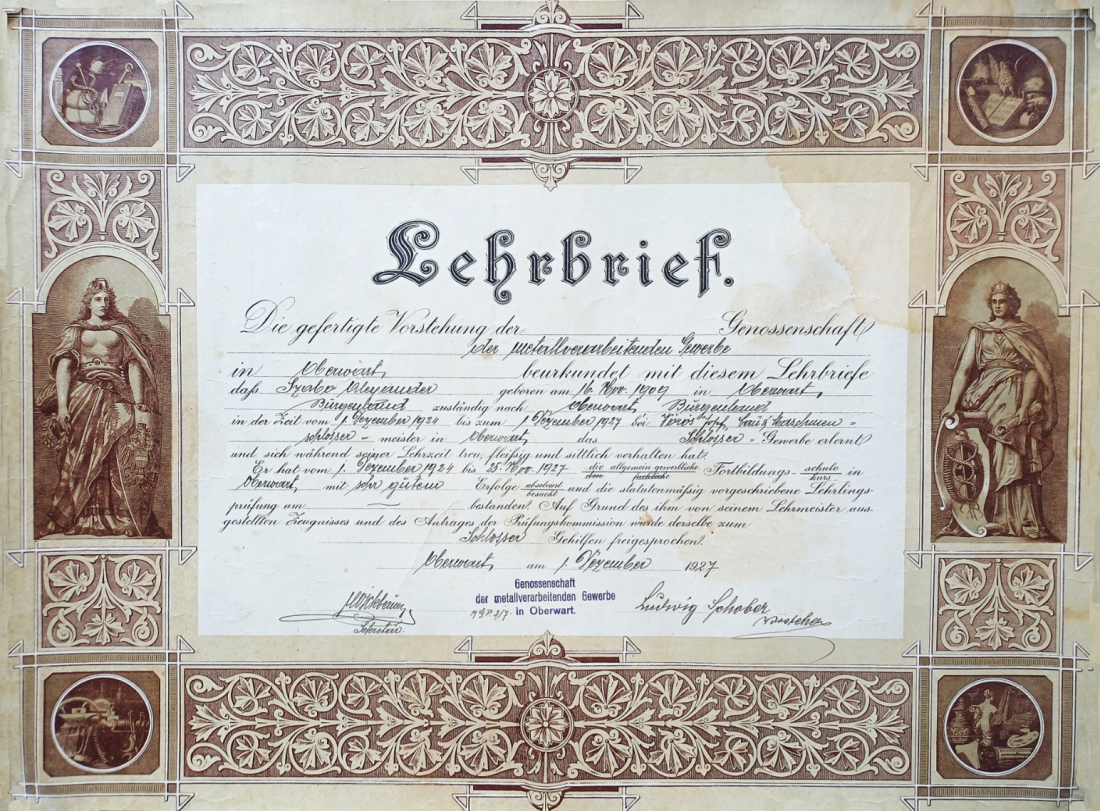 Lehrbrief.
Die gefertigte Vorstehung der Genossenschaft
der metallverarbeitenden Gewerbe
in Oberwart, beurkundet mit diesem Lehrbriefe
daß Szabo Alexander geboren am 16. Nov. 1909 in Oberwart,
Burgenland zuständig nach Oberwart, Burgenland
in der Zeit vom 1. Dezember 1924 bis zum 1. Dezember 1927 bei Vörös Josef,
schlosser - meister in Oberwart, das Schlosser - Gewerbe erlernt
und sich während seiner Lehrzeit treu, fleißig und sittlich verhalten hat.
Er hat vom 1. Dezember 1924 bis 25. Nov. 1927 die allgemein gewerbliche Fortbildungs- schule in
eine fachliche kurs
Oberwart, mit sehr gutem Erfolge absolviert und die statutenmäßig vorgeschriebene Lehrlings-
besucht
prüfung am — bestanden. Auf Grund des ihm von seinem Lehrmeister aus-
gestellten Zeugnisses und des Antrages der Prüfungskommission wurde derselbe zum
Schlosser Gehilfen freigesprochen.
Oberwart, am 1. Dezember 1927
Genossenschaft
der metallverarbeitenden Gewerbe
in Oberwart.
Ludwig Schober
Sekretär.